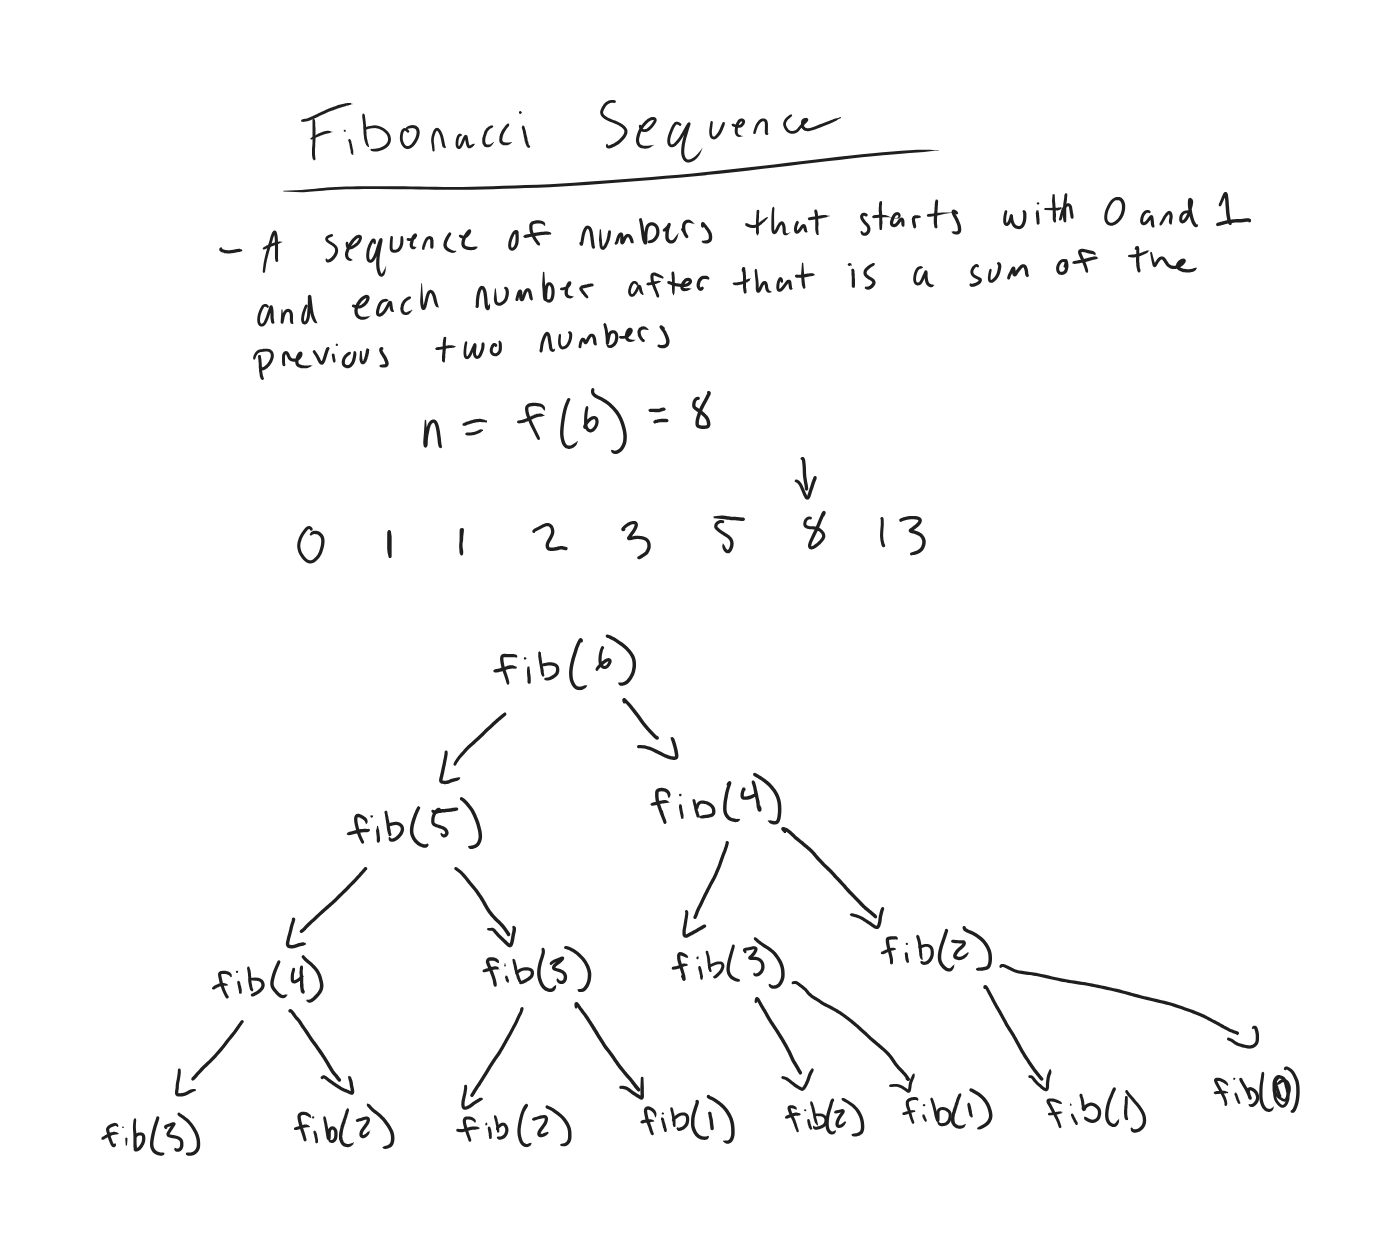 Fibonacci Sequence
- A sequence of numbers that starts with 0 and 1
and each number after that is a sum of the
previous two numbers
n = f(6) = 8
0 1 1 2 3 5 8 13
fib(6)
fib(5) fib(4)
fib(4) fib(3) fib(3) fib(2)
fib(3) fib(2) fib(2) fib(1) fib(2) fib(1) fib(1) fib(0)